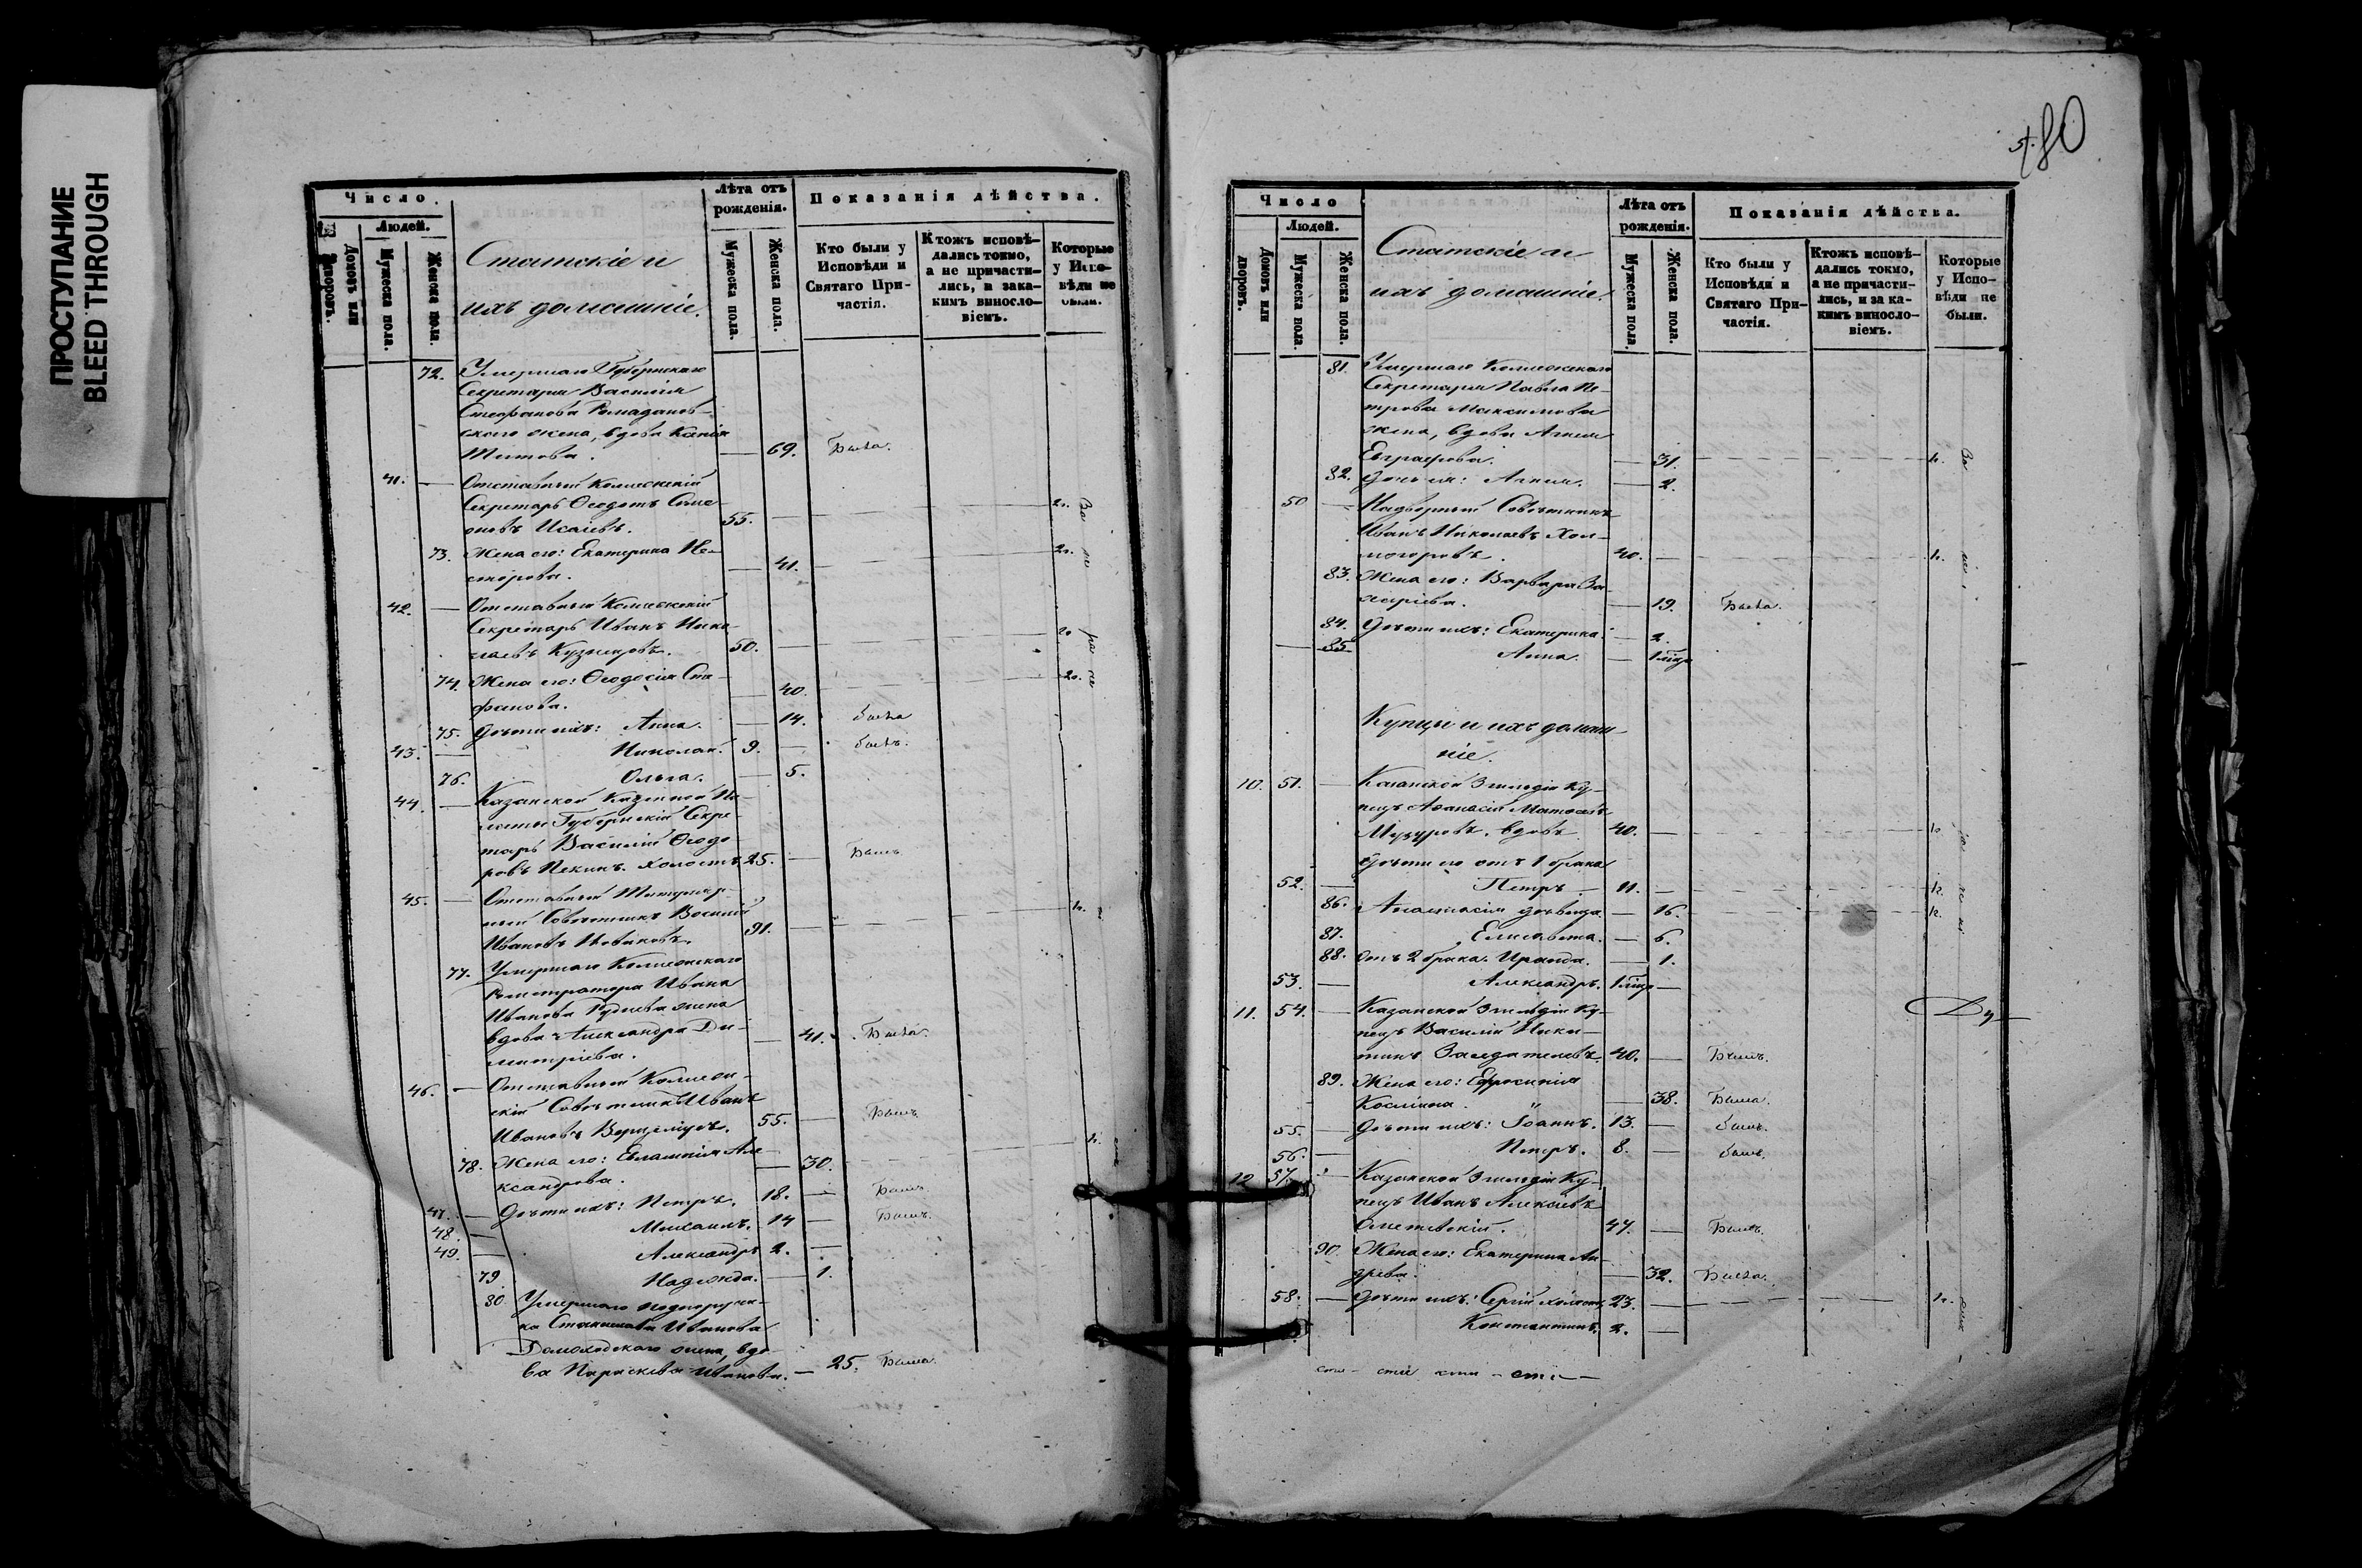 ПРОСТУПАНИЕ
BLEED THROUGH
Число.
Людей.
Домовъ или дворовъ.
Мужеска пола.
Женска пола.
Статскіе и
ихъ домашніе.
Лѣта отъ
рожденія.
Мужеска пола.
Женска пола.
Показанія дѣйства.
Кто были у
Исповѣди и
Святаго При-
частія.
Ктожъ исповѣ-
дались токмо,
а не причасти-
лись, и зака-
кимъ винosло-
віемъ.
Которые
у Испо-
вѣди не
были.
72. Умершаго Губернскаго
Секретаря Василія
Стефанова Ромаданов-
скаго жена, вдова Ксенія
Титова. — 69. Была.
41. — Отставный Коллежскій
Секретарь Ѳеодотъ Симе-
оновъ Исаіевъ. 55. —
73. Жена его: Екатерина Не-
сторова. — 41.
42. — Отставный Коллежскій
Секретарь Иванъ Нико-
лаевъ Кузнецовъ. 50. —
74. Жена его: Ѳеодосія Сте-
фанова. — 40.
75. Дѣти ихъ: Анна. — 14. была
43. — Николай. 9. — былъ.
76. Ольга. — 5.
44. — Казанской Казенной Па-
латы Губернскій Секре-
тарь Василій Ѳеодо-
ровъ Пекинъ. холостъ 25. — Былъ
45. — Отставный Титуляр-
ный Совѣтникъ Василій
Ивановъ Новиковъ. 91. —
77. Умершаго Коллежскаго
Регистратора Ивана
Иванова жена
вдова Александра Ди-
митріева. — 41. Была.
46. — Отставный Коллеж-
скій Совѣтникъ Иванъ
Ивановъ 55. — Былъ
78. Жена его: Евлампія Але-
ксандрова. — 30.
47. — Дѣти ихъ: Петръ. 18. — Былъ
48. — Михаилъ. 14 — Былъ.
49. — Александръ 2. —
79. Надежда. — 1.
80. Умершаго подпоручи-
ка Станислава Иванова
жена, вдо-
ва Параскева Иванова. — 25. Была.
180
Число
Людей.
Домовъ или дворовъ.
Мужеска пола.
Женска пола.
Статскіе и
ихъ домашніе.
Лѣта отъ
рожденія.
Мужеска пола.
Женска пола.
Показанія дѣйства.
Кто были у
Исповѣди и
Святаго При-
частія.
Ктожъ исповѣ-
дались токмо,
а не причасти-
лись, и за ка-
кимъ винoсло-
віемъ.
Которые
у Испо-
вѣди не
были.
81. Умершаго Коллежскаго
Секретаря Павла Пе-
трова Максимова
жена, вдова Агнія
Евграфова. — 31.
82. Дочь ея: Агнія. — 2.
50 — Надворный Совѣтникъ
Иванъ Николаевъ Хол-
могоровъ. 40. —
83. Жена его: Варвара За-
харіева. — 19. Была.
84. Дѣти ихъ: Екатерина. — 2.
85 Анна. —
Купцы и ихъ домаш-
ніе.
10. 51. — Казанской 3 гильдіи Ку-
пецъ Аѳанасій Матѳеевъ
Музуровъ. вдовъ 40. —
Дѣти его отъ 1 брака
52. — Петръ — 11. —
86. Анастасія дѣвица — 16.
87. Елисавета. — 6.
88. Отъ 2 брака: Ираида. — 1.
53. — Александръ.
11. 54. — Казанской 3 гильдіи Ку-
пецъ Василій Ники-
тинъ Заседателевъ. 40. — Былъ.
89. Жена его: Ефросинія
Космина. — 38. Была.
55. — Дѣти ихъ: Іоаннъ. 13. — былъ.
56. — Петръ. 8. — былъ.
12 57. — Казанской 3 гильдіи Ку-
пецъ Иванъ Алексіевъ
Сметовскій. 47. — Былъ.
90. Жена его: Екатерина Ан-
дреева. — 32. Была.
58. — Дѣти ихъ: Сергій холостъ 23. —
Константинъ. 2. —